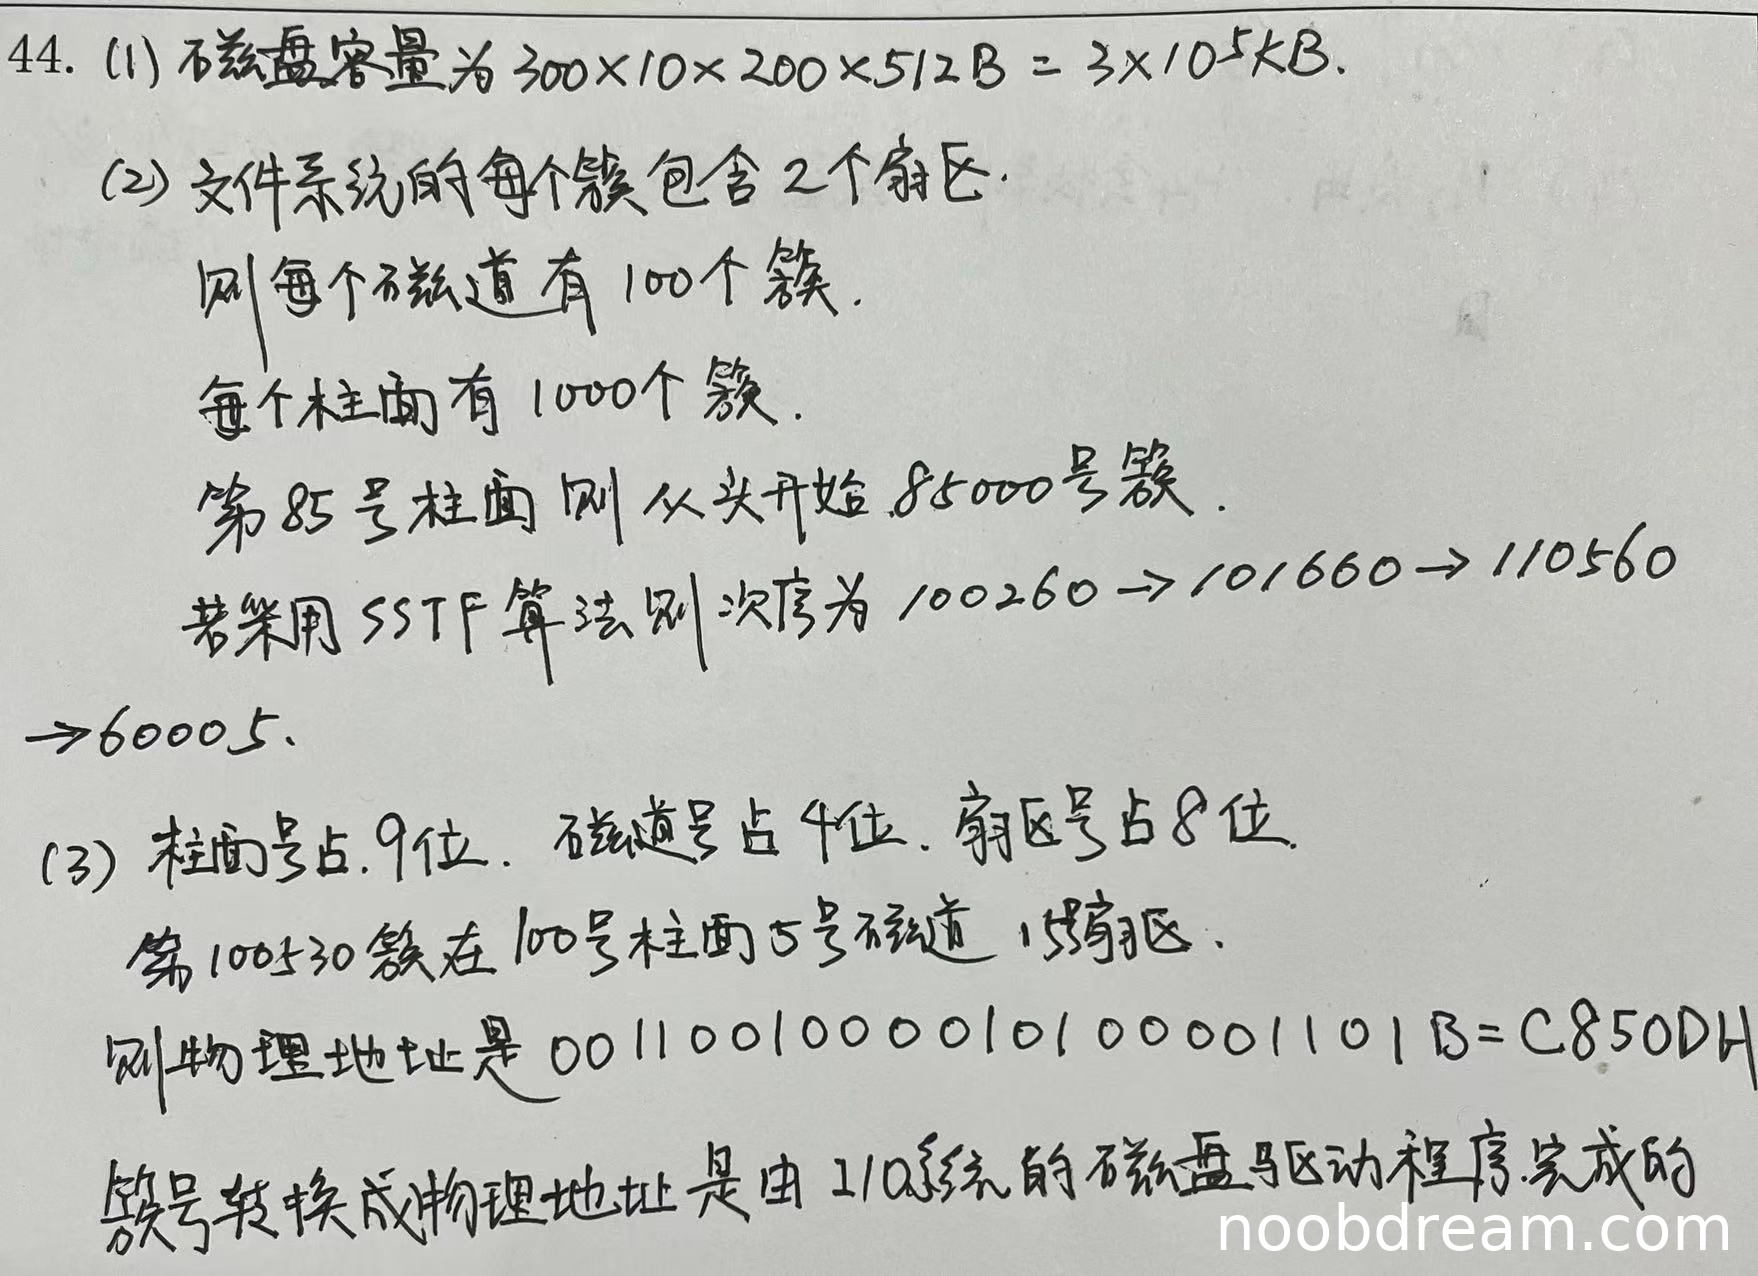 44. (1) 磁盘容量为 300×10×200×512B = 3×10⁵KB.
(2) 文件系统的每个簇包含2个扇区.
则每个磁道有100个簇.
每个柱面有1000个簇.
第85号柱面则从头开始85000号簇.
若采用SSTF算法则次序为 100260→101660→110560
→60005.
(3) 柱面号占9位. 磁道号占4位. 扇区号占8位.
第100530簇在100号柱面5号磁道 15号扇区.
则物理地址是 001100100001010000 1101B=C850DH
簇号转换成物理地址是由I/O系统的磁盘驱动程序完成的
noobdream.com